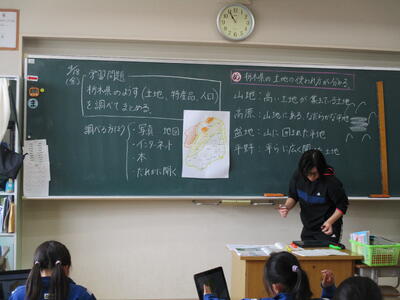 4/18
(金)
学習問題
栃木県のようす(土地、特産品、人口)
を調べてまとめる。
調べる方は?
・写真 地図
・インターネット
・本
・だれかに聞く
栃木県の土地の使われ方が分かる。
山地:高い土地が集まっている土地
高原:山地にある、なだらかな土地
盆地:山に囲まれた平地
平野:平らに広く開けた土地